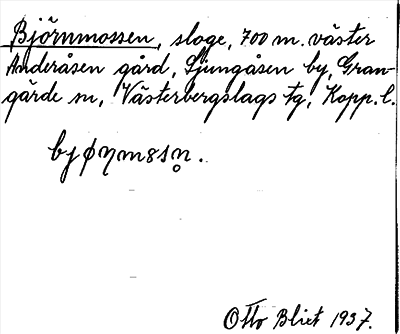 Björnmossen, sloge, 700 m. väster
Anderåsen gård, Ljungåsen by, Gran-
gärde sn, Västerbergslags tg, Kopp. l.
bjøɳmɞsn̥.
Otto Blixt 1937.